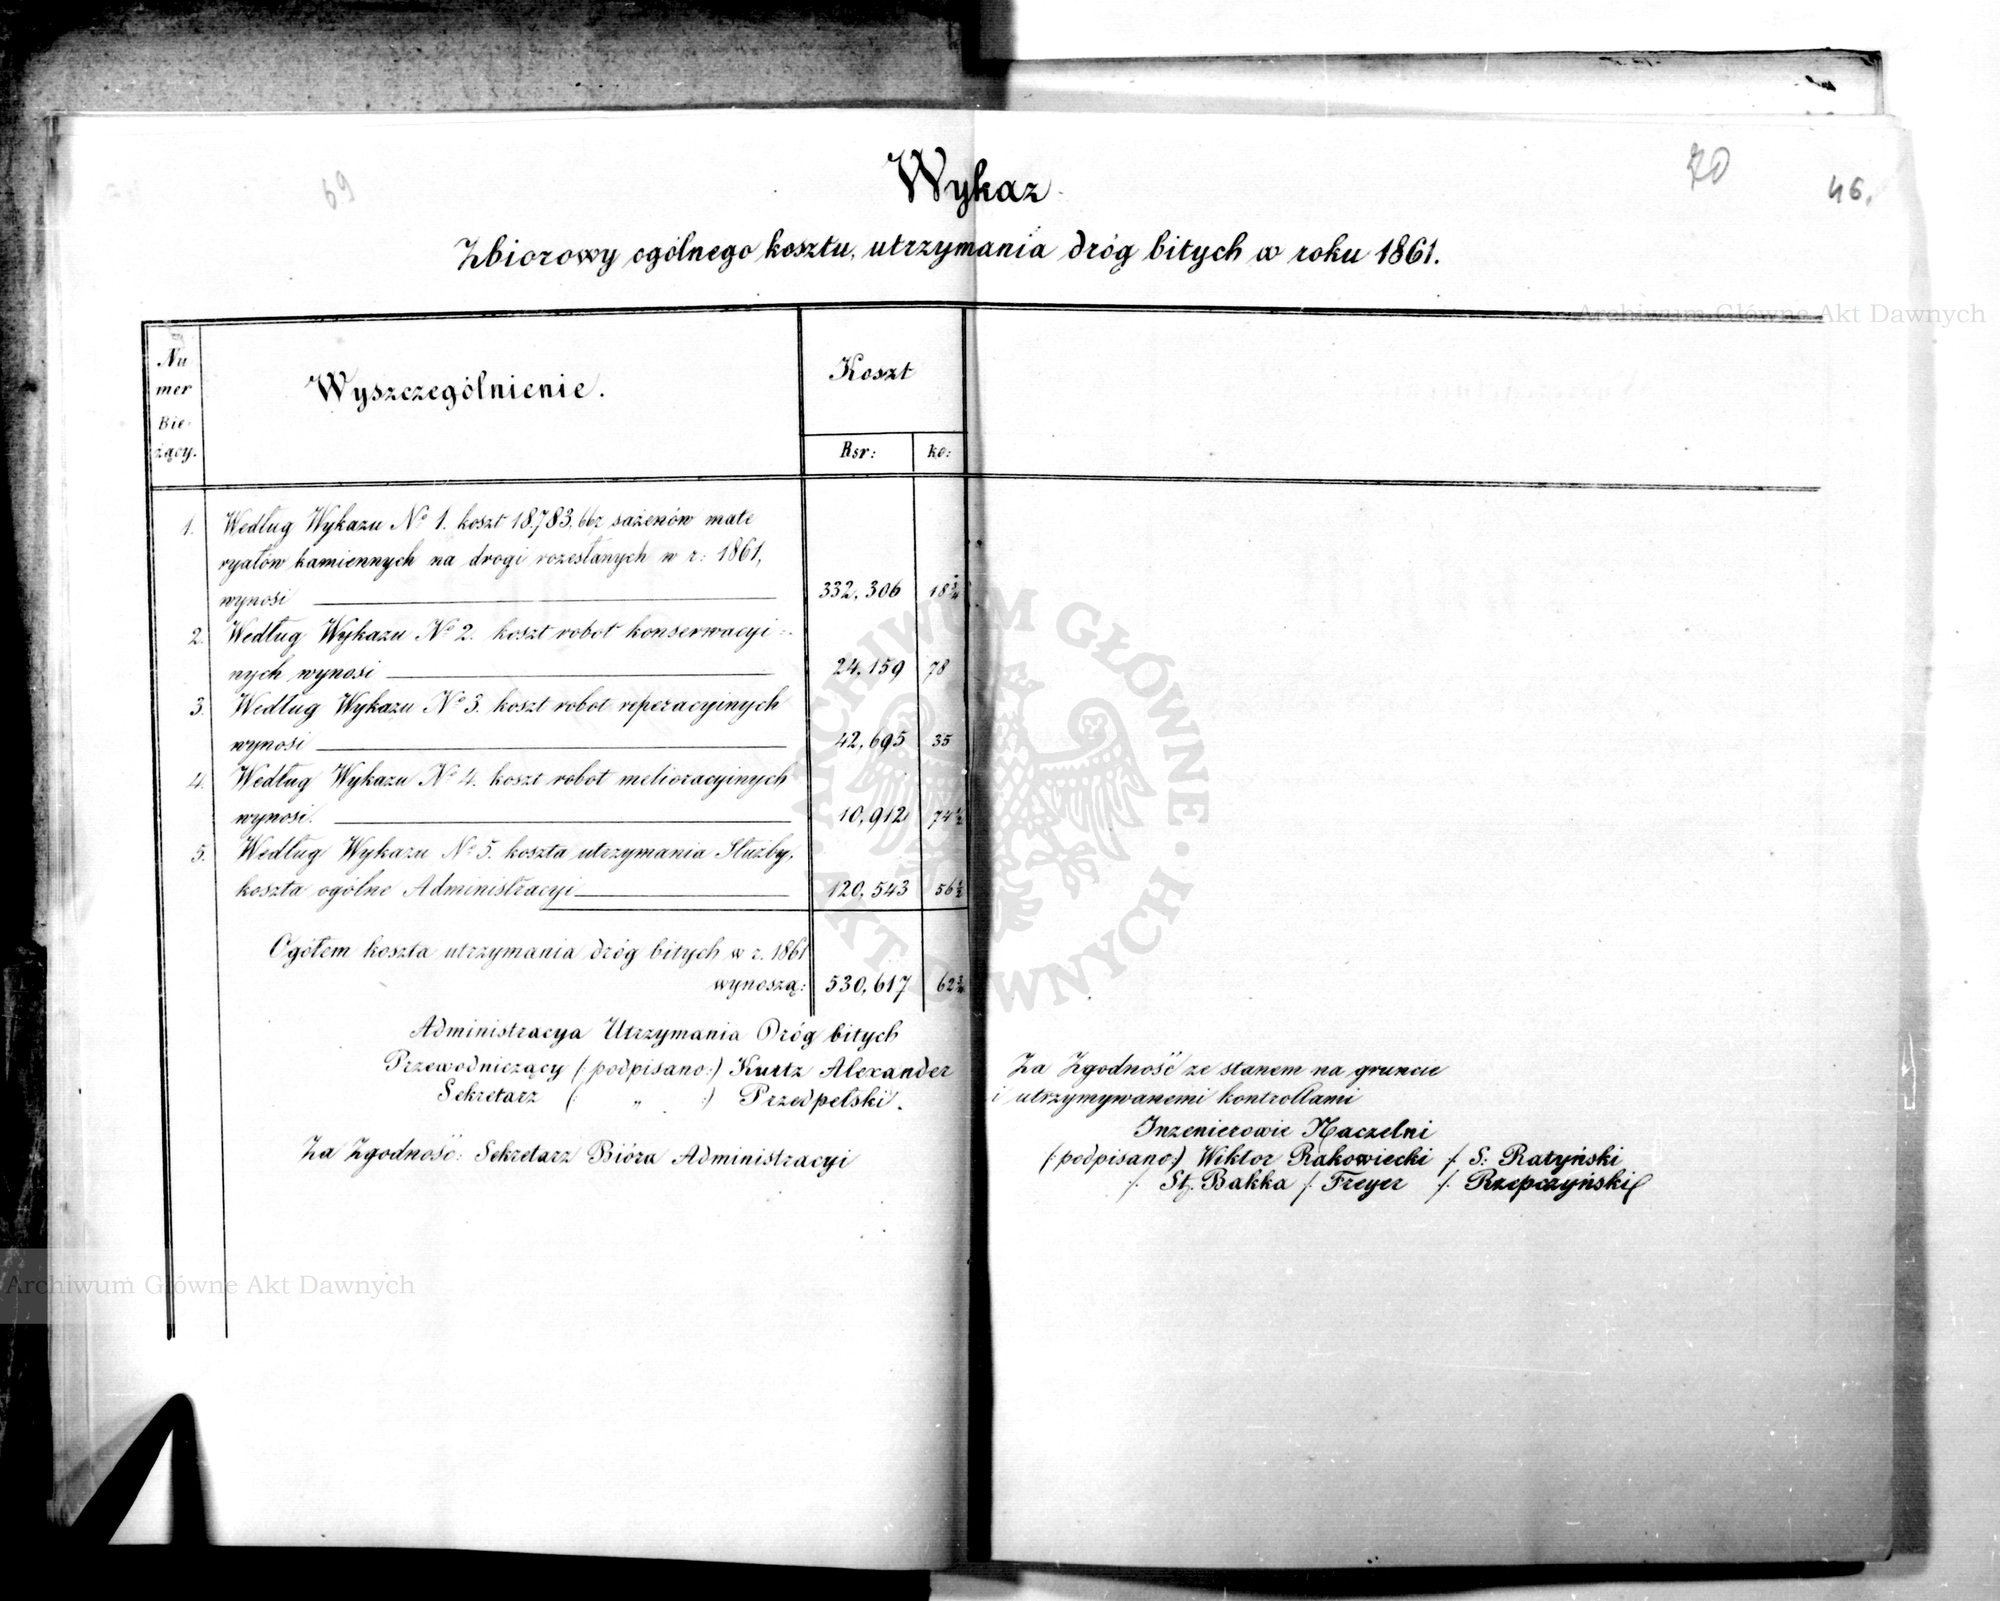 69
70
46.
Wykaz
Zbiorowy ogólnego kosztu, utrzymania dróg bitych w roku 1861.
Nu
mer
Bie-
żący.
Wyszczególnienie.
Koszt
Rsr:
ko:
1. Według Wykazu No 1. koszt 18,783,662 sażenów mate
ryałów kamiennych na drogi rozesłanych w r: 1861,
wynosi 332,306 18 3/4
2. Według Wykazu No 2. koszt robot konserwacyi=
nych wynosi 24,159 78
3. Według Wykazu No 3. koszt robot reperacyinych
wynosi 42,695 35
4. Według Wykazu No 4. koszt robot melioracyinych
wynosi. 10,912 74 1/2
5. Według Wykazu No 5. koszta utrzymania Służby,
koszta ogólne Administracyi 120,543 56 1/2
Ogółem koszta utrzymania dróg bitych w r. 1861
wynoszą: 530,617 62 3/4
Administracya Utrzymania Dróg bitych
Przewodniczący (podpisano:) Kurtz Alexander
Sekretarz (: „ :) Przedpelski.
Za Zgodność: Sekretarz Bióra Administracyi
Za Zgodność ze stanem na gruncie
i utrzymywanemi kontrollami
Inzenierowie Naczelni
(:podpisano:) Wiktor Rakowiecki /: S: Ratyński
/: St. Bakka /: Freyer /: Rzepczyński
Archiwum Główne Akt Dawnych
Archiwum Główne Akt Dawnych
ARCHIWUM GŁÓWNE AKT DAWNYCH